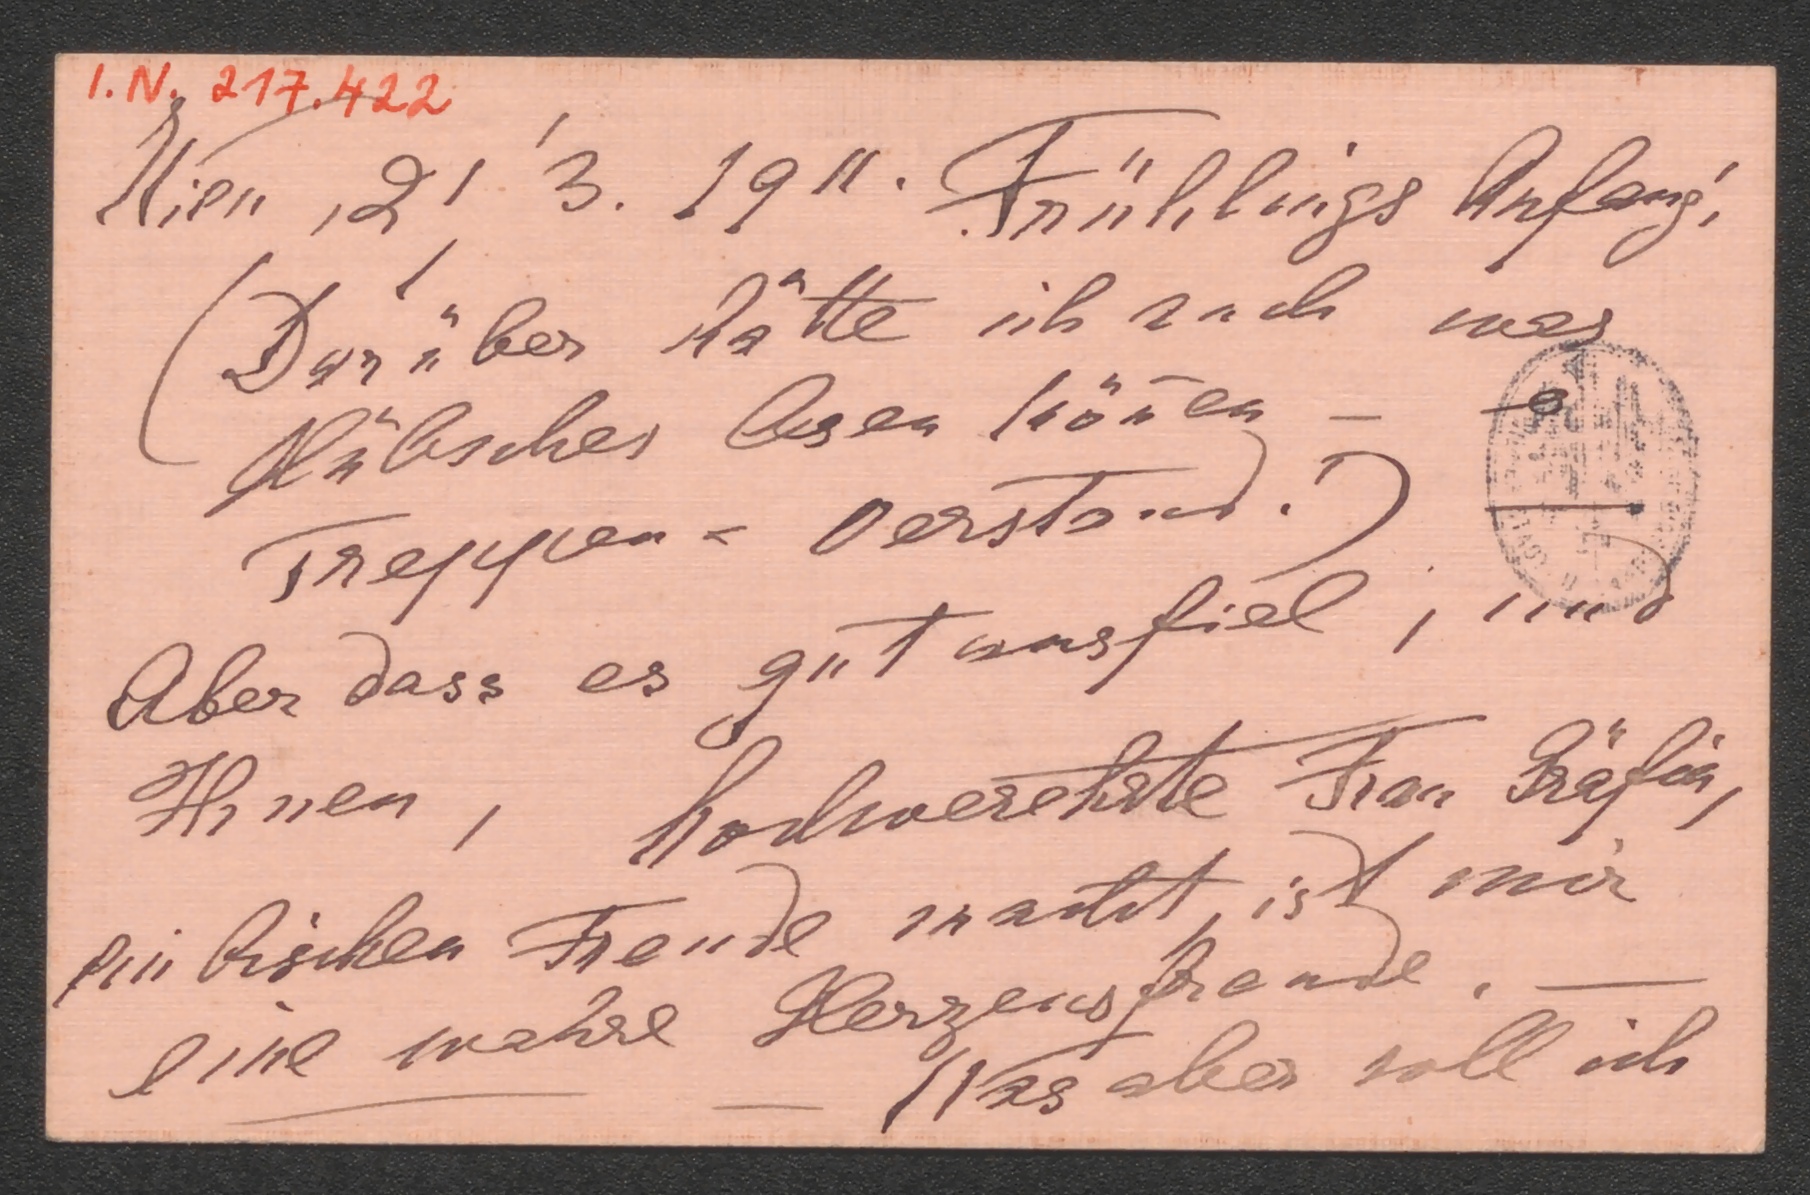 I.N. 217.422
Wien, 21/3. 1911. Frühlings Anfang!
(Darüber hätte ich auch was
Hübsches lesen können – o
Treppen-Verstand!)
Aber dass es gut ausfiel, und
Ihnen, hochverehrte Frau Gräfin,
ein bischen Freude macht, ist mir
eine wahre Herzensfreude. —
— Was aber soll ich